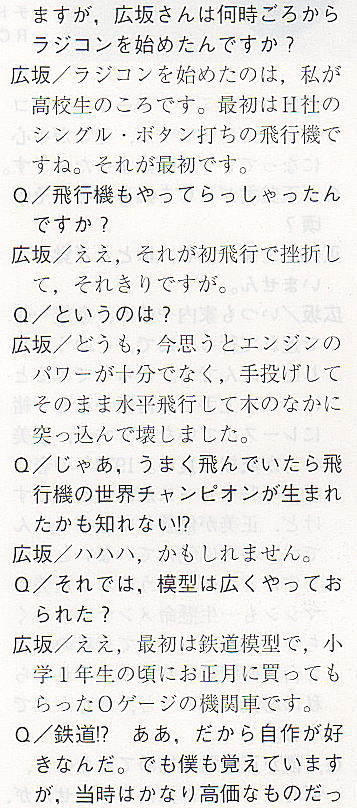 ますが，広坂さんは何時ごろから
ラジコンを始めたんですか？
広坂／ラジコンを始めたのは，私が
高校生のころです。最初はＨ社の
シングル・ボタン打ちの飛行機で
すね。それが最初です。
Ｑ／飛行機もやってらっしゃったん
ですか？
広坂／ええ，それが初飛行で挫折し
て，それきりですが。
Ｑ／というのは？
広坂／どうも，今思うとエンジンの
パワーが十分でなく，手投げして
そのまま水平飛行して木のなかに
突っ込んで壊しました。
Ｑ／じゃあ，うまく飛んでいたら飛
行機の世界チャンピオンが生まれ
たかも知れない!?
広坂／ハハハ，かもしれません。
Ｑ／それでは，模型は広くやってお
られた？
広坂／ええ，最初は鉄道模型で，小
学１年生の頃にお正月に買っても
らったＯゲージの機関車です。
Ｑ／鉄道!?　ああ，だから自作が好
きなんだ。でも僕も覚えています
が，当時はかなり高価なものだっ